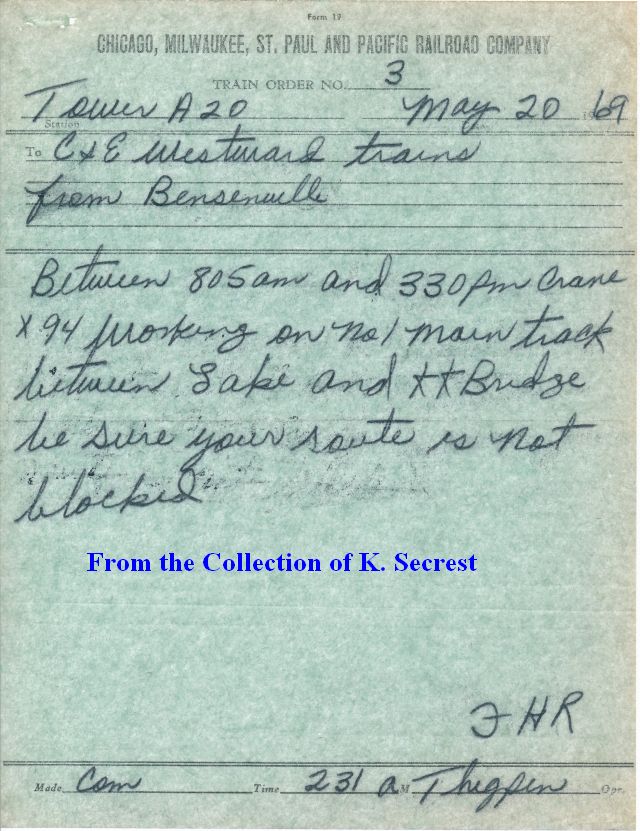 Form 19
CHICAGO, MILWAUKEE, ST. PAUL AND PACIFIC RAILROAD COMPANY
TRAIN ORDER NO. 3
Tower A20 May 20 1969
Station
To C&E Westward trains
from Bensenville
Between 805am and 330pm Crane
X94 working on No 1 main track
between Lake and XX Bridge
be sure your route is not
blocked
From the Collection of K. Secrest
FHR
Made Com Time 231 a M Thigpen Opr.